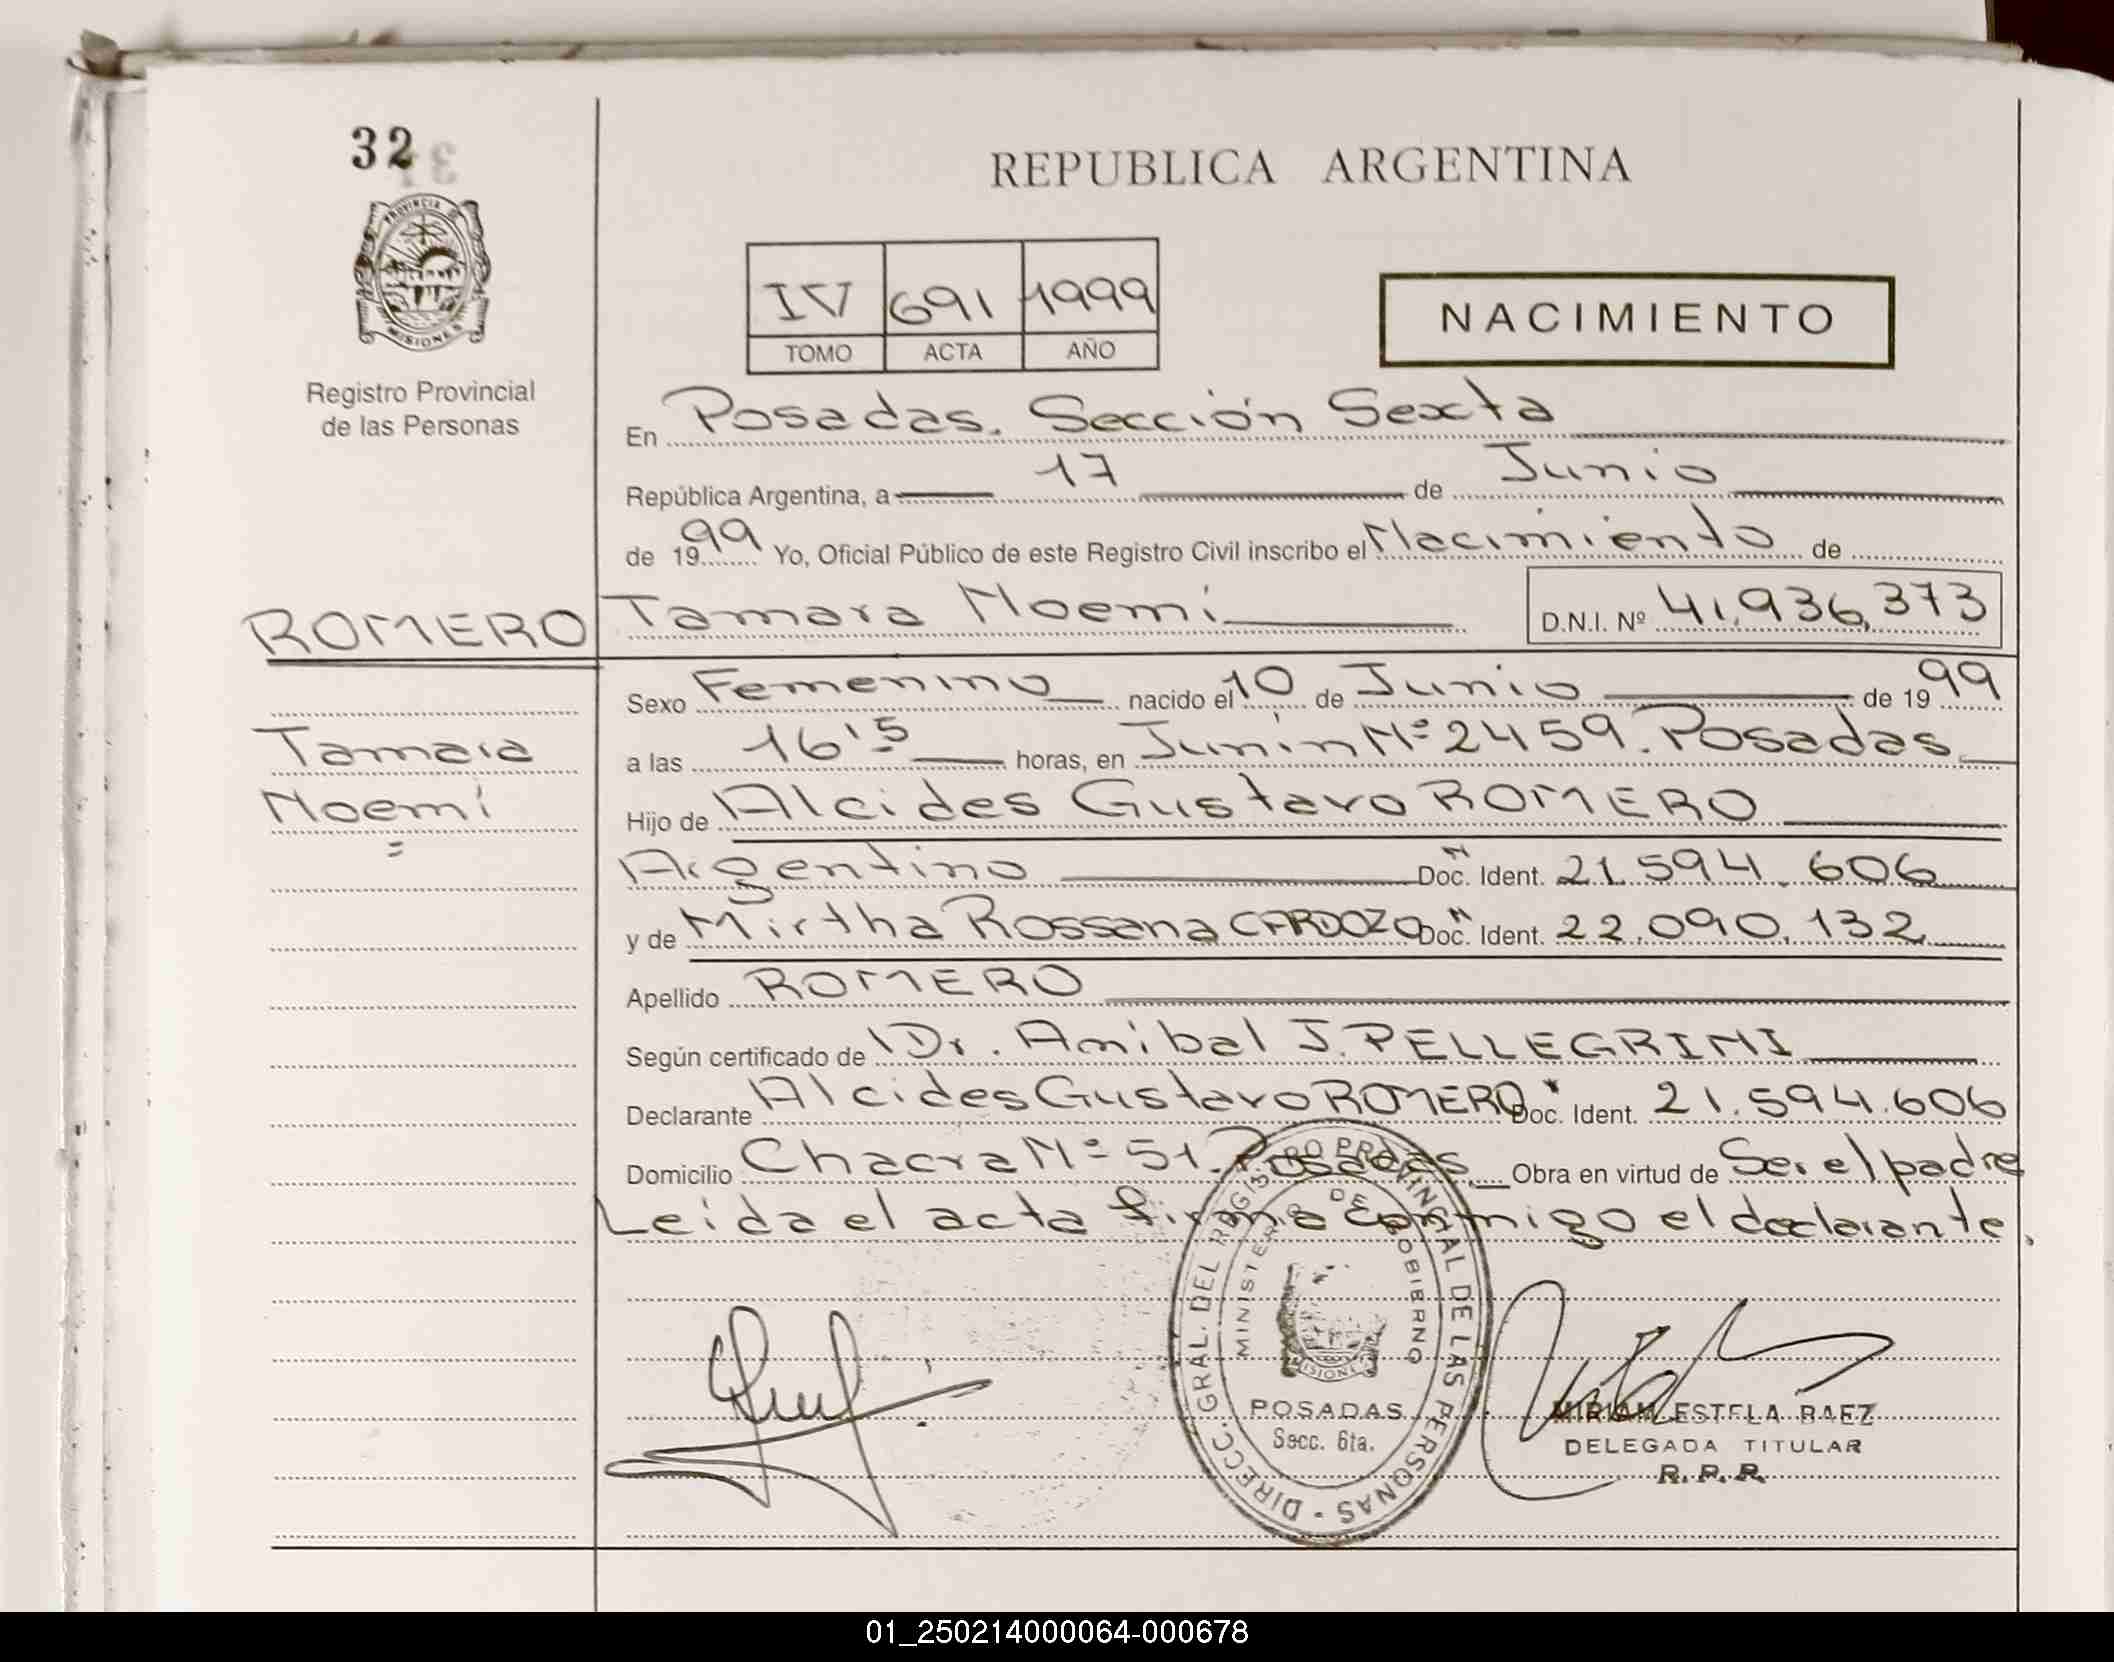 32
REPUBLICA ARGENTINA
PROVINCIA
MISIONES
Registro Provincial
de las Personas
IV 691 1999
TOMO ACTA AÑO
NACIMIENTO
En Posadas. Sección Sexta
República Argentina, a 17 de Junio
de 1999 Yo, Oficial Público de este Registro Civil inscribo el Nacimiento de
ROMERO Tamara Noemí D.N.I. Nº 41.936.373
Sexo Femenino nacido el 10 de Junio de 1999
Tamara
a las 16'5 horas, en Junin Nº 2459. Posadas
Noemí
Hijo de Alcides Gustavo ROMERO
Argentino Doc. Ident. 21.594.606
y de Mirtha Rossana CARDOZO Doc. Ident. 22.090.132
Apellido ROMERO
Según certificado de Dr. Anibal J. PELLEGRINI
Declarante Alcides Gustavo ROMERO Doc. Ident. 21.594.606
Domicilio Chacra Nº 51. Posadas. Obra en virtud de Ser el padre
Leida el acta firma conmigo el declarante.
DIRECC. GRAL. DEL REGISTRO PROVINCIAL DE LAS PERSONAS
MINISTERIO DE GOBIERNO
MISIONES
POSADAS
Secc. 6ta.
MIRIAM ESTELA BAEZ
DELEGADA TITULAR
R.P.P.
01_250214000064-000678